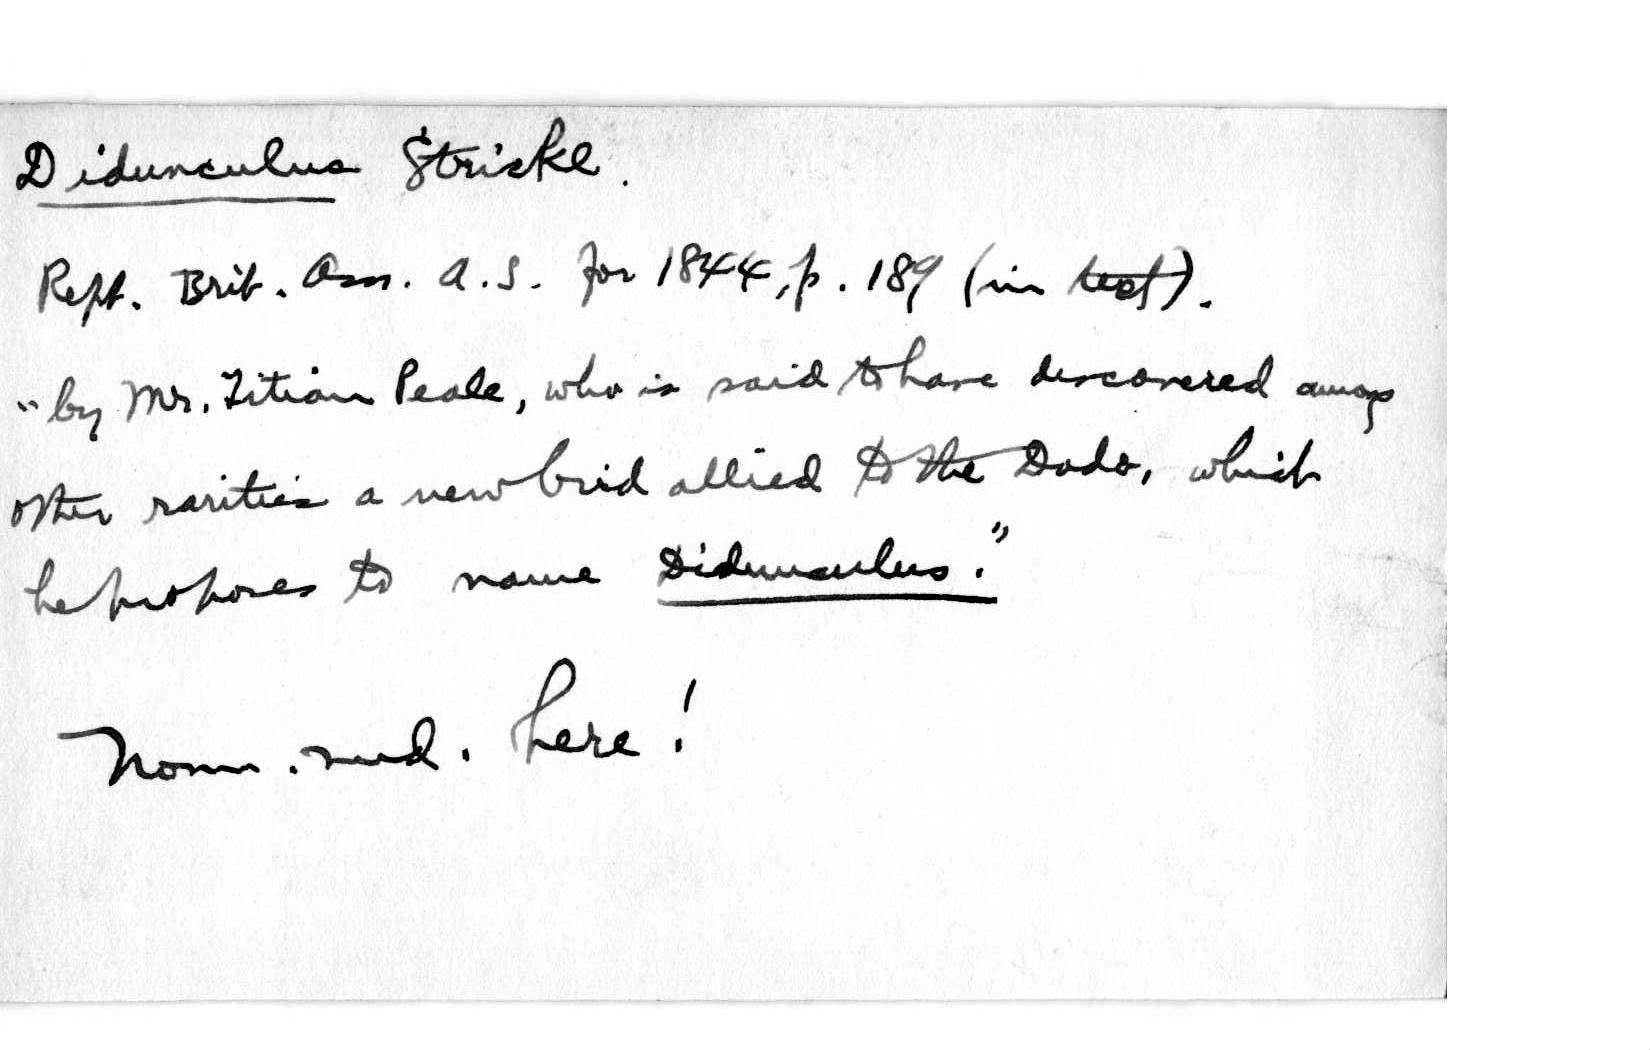 Didunculus Strickl.
Rept. Brit. Assn. A.S. for 1844, p. 189 (in text).
"by Mr. Titian Peale, who is said to have discovered among
other rarities a new bird allied to the Dodo, which
he proposes to name Didunculus."
Nom. nud. here!